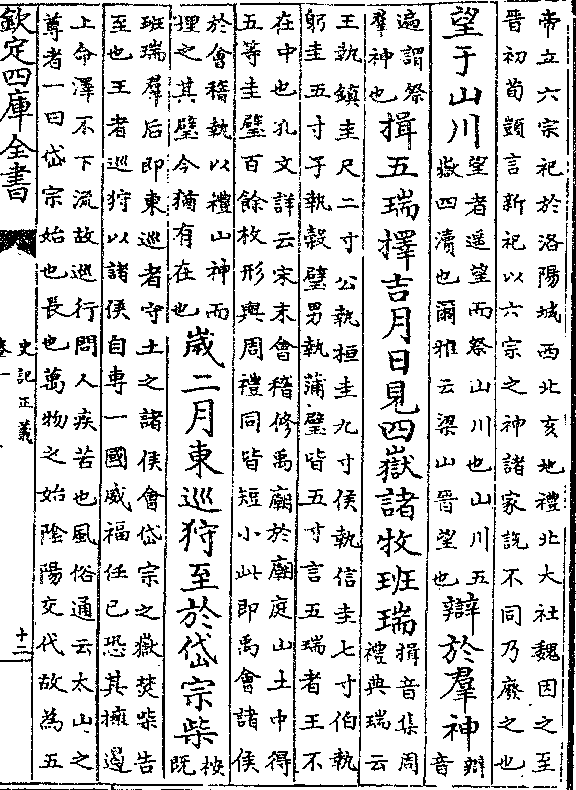 帝立六宗祀於洛陽城西北亥地禮北大社魏因之至
晉初荀顗言新祀以六宗之神諸家說不同乃廢之也
望于山川
望者遥望而祭山川也山川五
嶽四瀆也爾雅云梁山晉望也
辯於羣神
辯
音
遍謂祭
羣神也
揖五瑞擇吉月日見四嶽諸牧班瑞
揖音集周
禮典瑞云
王執鎮圭尺二寸 公執桓圭九寸侯執信圭七寸伯執
躬圭五寸子執穀璧男執蒲璧皆五寸言五瑞者王不
在中也孔文詳云宋末會稽修禹廟於廟庭山土中得
五等圭璧百餘枚形與周禮同皆短小此即禹會諸侯
於會稽執以禮山神而
埋之其璧今猶有在也
歲二月東巡狩至於岱宗柴
按
既
班瑞羣后即東巡者守土之諸侯會岱宗之嶽焚柴告
至也王者巡狩以諸侯自專一國威福任已恐其擁遏
上命澤不下流故巡行問人疾苦也風俗通云太山之
尊者一曰岱宗始也長也萬物之始陰陽交代故為五
欽定四庫全書
史記正義
卷一
十二